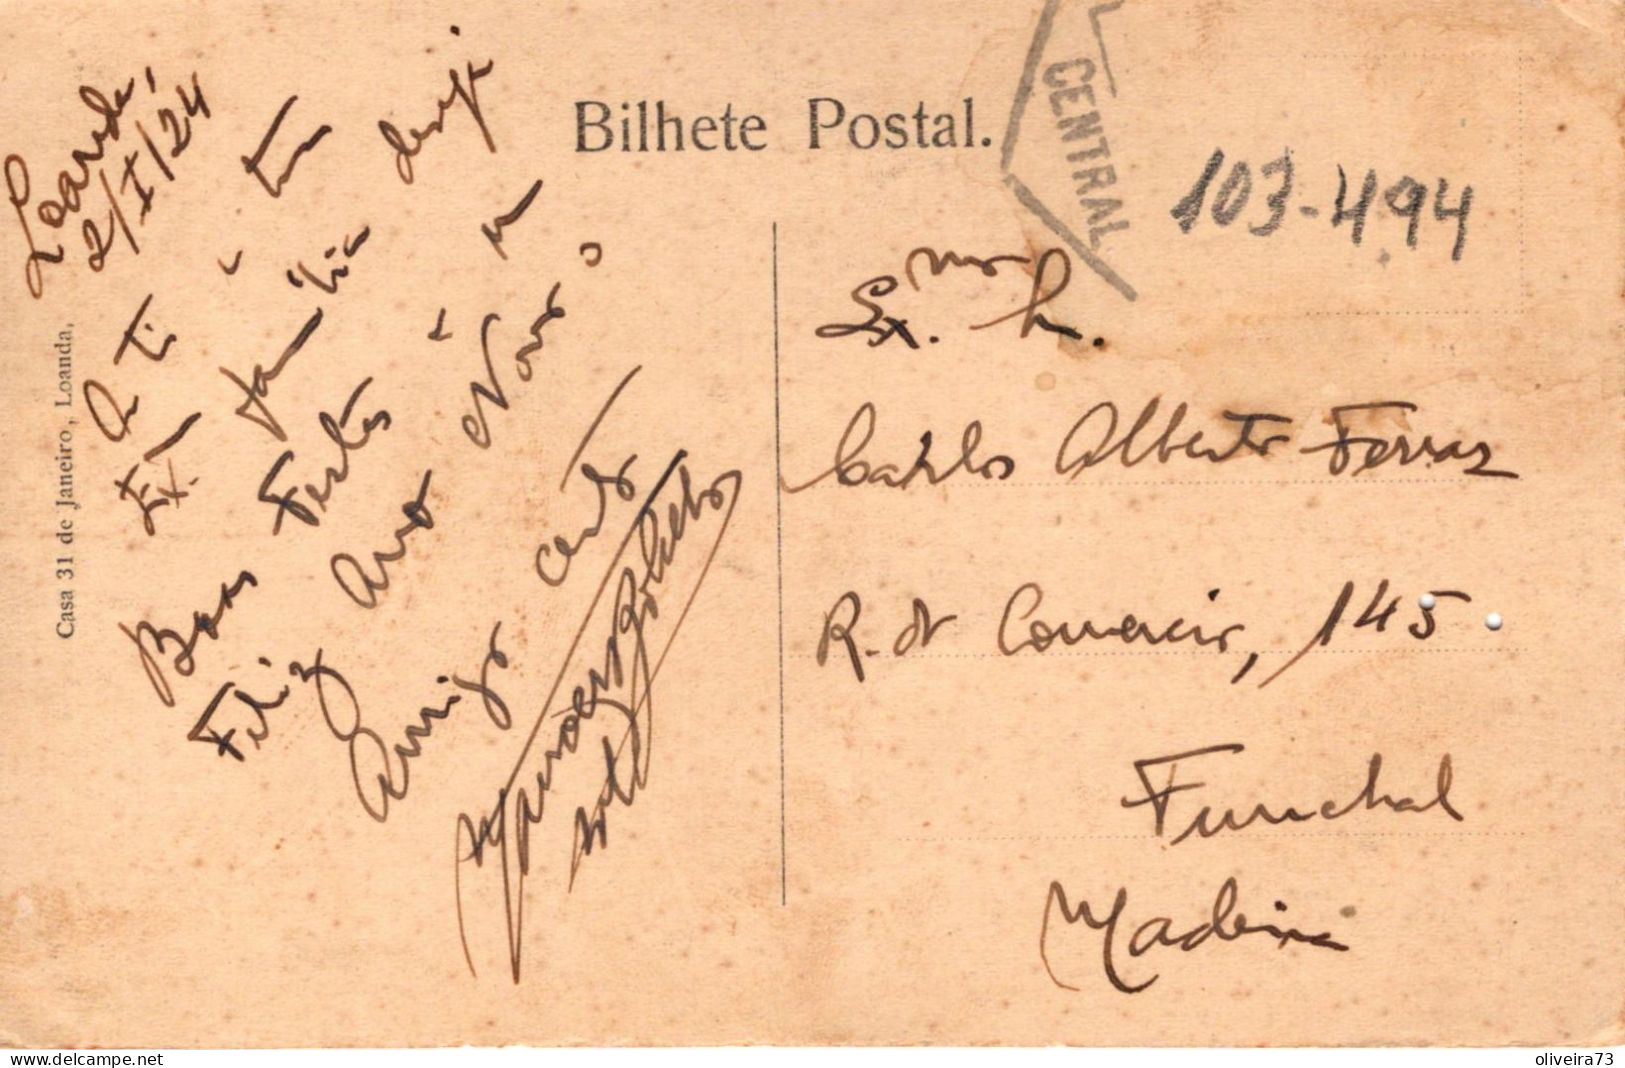 Bilhete Postal.
CENTRAL
103-494
Casa 31 de Janeiro, Loanda,
Loanda,
2/I/24
A ti e á tua
Ex. familia desejo
Boas Festas e um
Feliz Ano Novo,
Amigo certo
Ex.mo Sr.
Carlos Alberto Ferraz
R. do Comercio, 145
Funchal
Madeira
delcampe.net
oliveira73